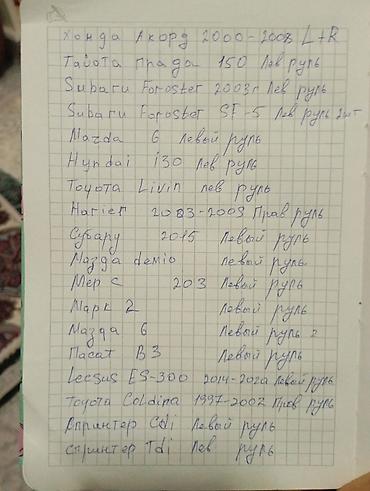 Хонда Акорд 2000-2008 L+R
Тайота прада 150 Лев руль
Subaru Foroster 2003г Лев руль
Subaru Foroster SF-5 Лев руль 2шт
Mazda 6 Левый руль
Hyndai i30 Лев руль
Toyota Livin лев руль
Hariеr 2003-2009 Прав руль
Субару 2015 Левый руль
Мазда demio Левый руль
Мерс 203 Левый руль
Марк 2 Левый руль
Мазда 6 Левый руль 2
Пасат B3 Левый руль
Lecsus ES-300 2014-2020 Левый руль
Toyota Coldina 1997-2002 Прав руль
Спринтер Cdi Левый руль
спринтер Tdi Лев руль